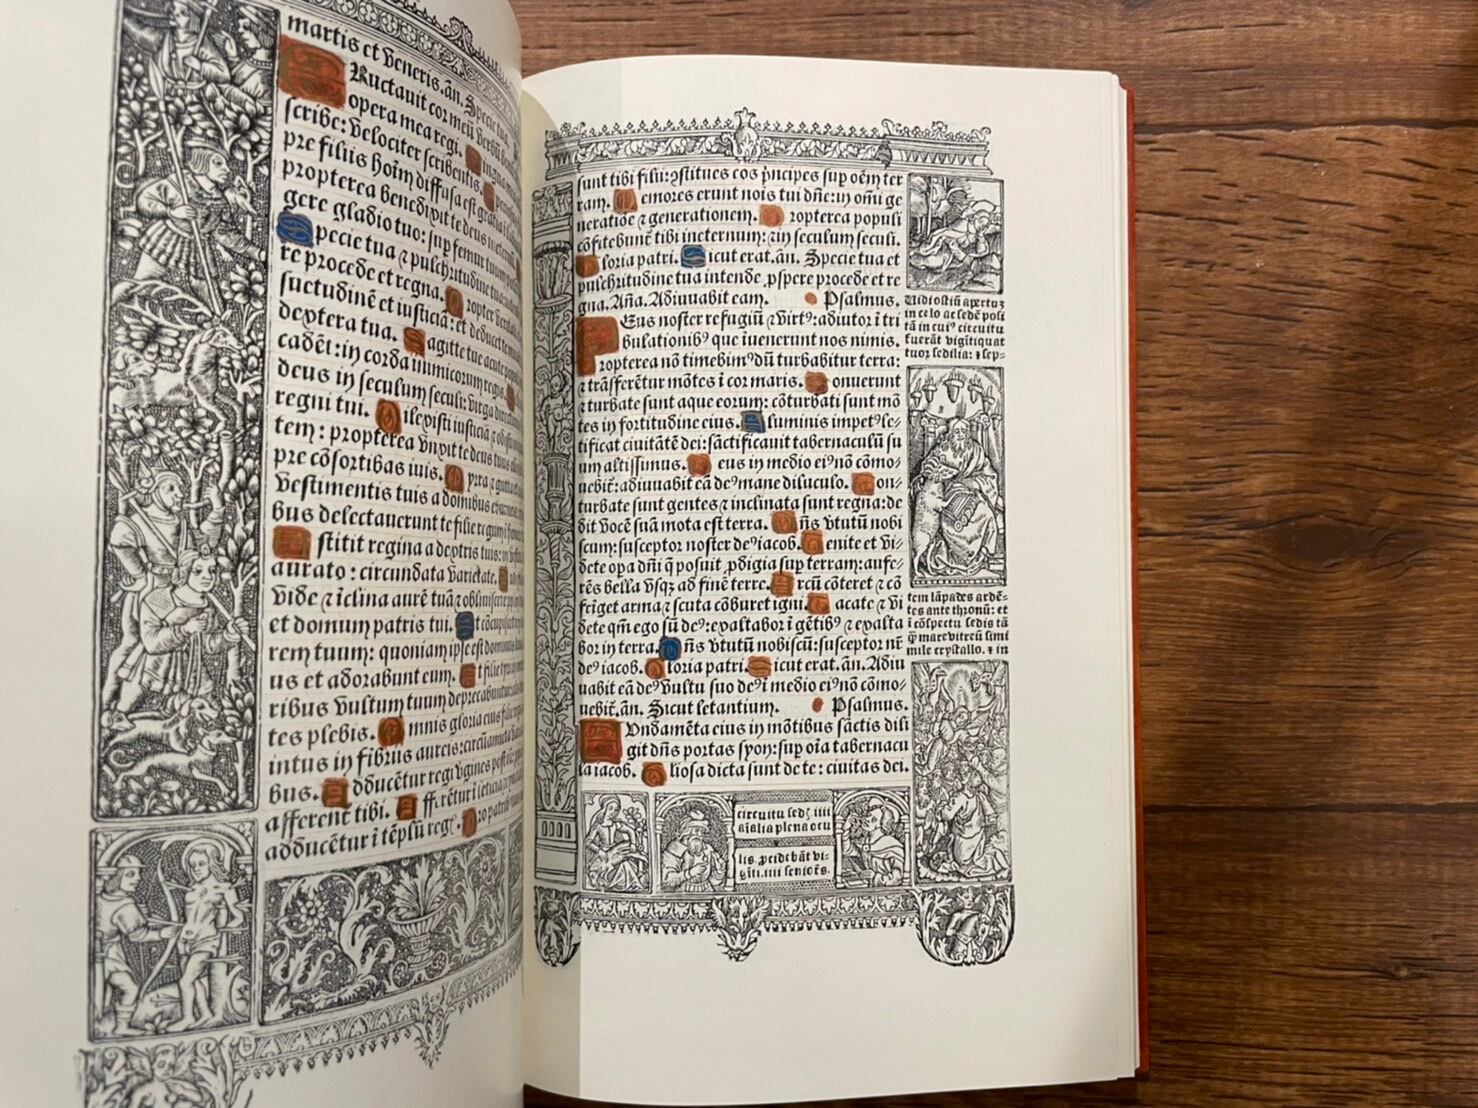 martis et veneris. añ. Specie tua.
Ructauit cor meũ verbũ
opera mea regi. ingua mea
scribe: velociter scribentis. peciosus
pre filiis hoĩm diffusa est gratia ĩ
propterea benedixit te deus in eternũ
gere gladio tuo: sup femur tuum
pecie tua ⁊ pulchritudine tua
re procede et regna. ropter veritatẽ
suetudinẽ et iusticiã: et deducet te
dextera tua. agitte tue acute populi
cadẽt: in corda inimicorum regis.
deus in seculum seculi: virga directionis
regni tui. ilexisti iusticiã ⁊ odisti
tem: propterea vnxit te deus tuus oleo
pre cõsortibus tuis. yrra ⁊ gutta et
vestimentis tuis a domibus eburneis
bus delectauerunt te filie regum ĩ
stitit regina a dextris tuis: in vestitu
aurato: circundata varietate. udi
vide ⁊ ĩclina aurẽ tuã ⁊ obliuiscere
et domum patris tui. t cõcupiscet
rem tuum: quoniam ipse est dominus
us et adorabunt eum. t filie tyri
ribus vultum tuum deprecabuntur
tes plebis. mnis gloria eius filie regis
intus in fibrus aureis: circũamicta
bus. dducẽtur regi vgines post eã:
afferent tibi. fferẽtur ĩ leticia
adducẽtur ĩ tẽplũ reg⁊. ro patribus
sunt tibi filii: ꝯstitues eos pncipes sup oẽm ter
ram. emores erunt nois tui dñe: in omĩ ge
neratiõe ⁊ generationem. ropterea populi
cõfitebunt tibi ineternum: ⁊ in seculum seculi.
loria patri. icut erat. añ. Specie tua et
pulchritudine tua intende, pspere procede et re
gna. Aña. Adiuuabit eam. Psalmus.
Eus noster refugiũ ⁊ virt⁹: adiutor ĩ tri
bulationib⁹ que ĩuenerunt nos nimis.
ropterea nõ timebim⁹ dũ turbabitur terra:
⁊ trãsferẽtur mõtes ĩ cor maris. onuerunt
⁊ turbate sunt aque eorum: cõturbati sunt mõ
tes in fortitudine eius. luminis impet⁹ le-
tificat ciuitatẽ dei: sãctificauit tabernaculũ su
um altissimus. eus in medio ei⁹ nõ cõmo-
uebit̃: adiuuabit eã de⁹ mane diluculo. on-
turbate sunt gentes ⁊ inclinata sunt regna: de
dit vocẽ suã mota est terra. ñs vtutũ nobi
scum: susceptor noster de⁹ iacob. enite et vi-
dete opa dñi q̃ posuit prodigia sup terram: aufe-
rẽs bella vsqꝫ ad finẽ terre. rcũ cõteret ⁊ cõ
frĩget arma ⁊ scuta cõburet igni. acate ⁊ vi
dete qm̃ ego sũ de⁹: exaltabor ĩ gẽtib⁹ ⁊ exalta
bor in terra. ñs vtutũ nobiscum: susceptor nr̃
de⁹ iacob. loria patri. icut erat. añ. Adiu
uabit eã de⁹ vultu suo de⁹ ĩ medio ei⁹ nõ cõmo-
uebit̃. añ. Sicut letantium. Psalmus.
Vndamẽta eius in mõtibus sãctis dili
git dñs portas syon: sup oĩa tabernacu
la iacob. liosa dicta sunt de te: ciuitas dei.
Vidi ostiũ apertuꝫ
in celo ac sedẽ posi
tã in cui⁹ circuitu
fuerãt vigĩti quat
tuor sedilia: ⁊ sep-
tem lãpades ardẽ-
tes ante thronũ: et
ĩ cõspectu sedis tã
q̃ mare vitreũ simi
mile crystallo. ⁊ in
circuitu sedꝭ iiii
aĩalia plena ocu
lis. preidebãt vi-
gĩti. iiii seniores.